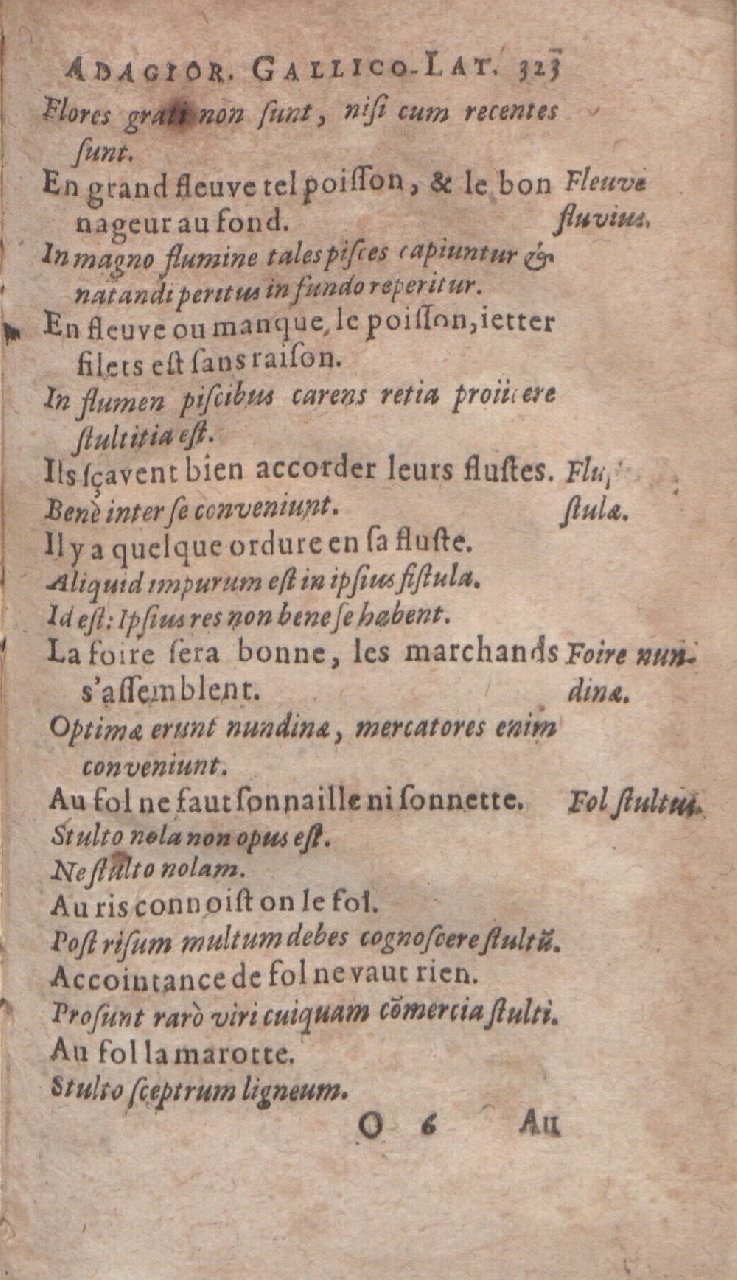 ADAGIOR. GALLICO-LAT. 323
Flores grati non ſunt, niſi cum recentes
ſunt.
En grand fleuve tel poiſſon, & le bon Fleuve
nageur au fond. fluvius.
In magno flumine tales piſces capiuntur &
natandi peritus in fundo reperitur.
En fleuve ou manque, le poiſſon, ietter
filets eſt ſans raiſon.
In flumen piſcibus carens retia proiicere
ſtultitia eſt.
Ils ſçavent bien accorder leurs fluſtes.
Benè inter ſe conveniunt. ſtulæ.
Il y a quelque ordure en ſa fluſte.
Aliquid impurum eſt in ipſius fiſtula.
Id eſt: Ipſius res non bene ſe habent.
La foire ſera bonne, les marchands Foire nun-
s'aſſemblent. dinæ.
Optimæ erunt nundinæ, mercatores enim
conveniunt.
Au fol ne faut ſonnaille ni ſonnette. Fol ſtultus.
Stulto nola non opus eſt.
Ne ſtulto nolam.
Au ris connoiſt on le fol.
Poſt riſum multum debes cognoſcere ſtultū.
Accointance de fol ne vaut rien.
Proſunt rarò viri cuiquam cōmercia ſtulti.
Au fol la marotte.
Stulto ſceptrum ligneum.
O 6 Au